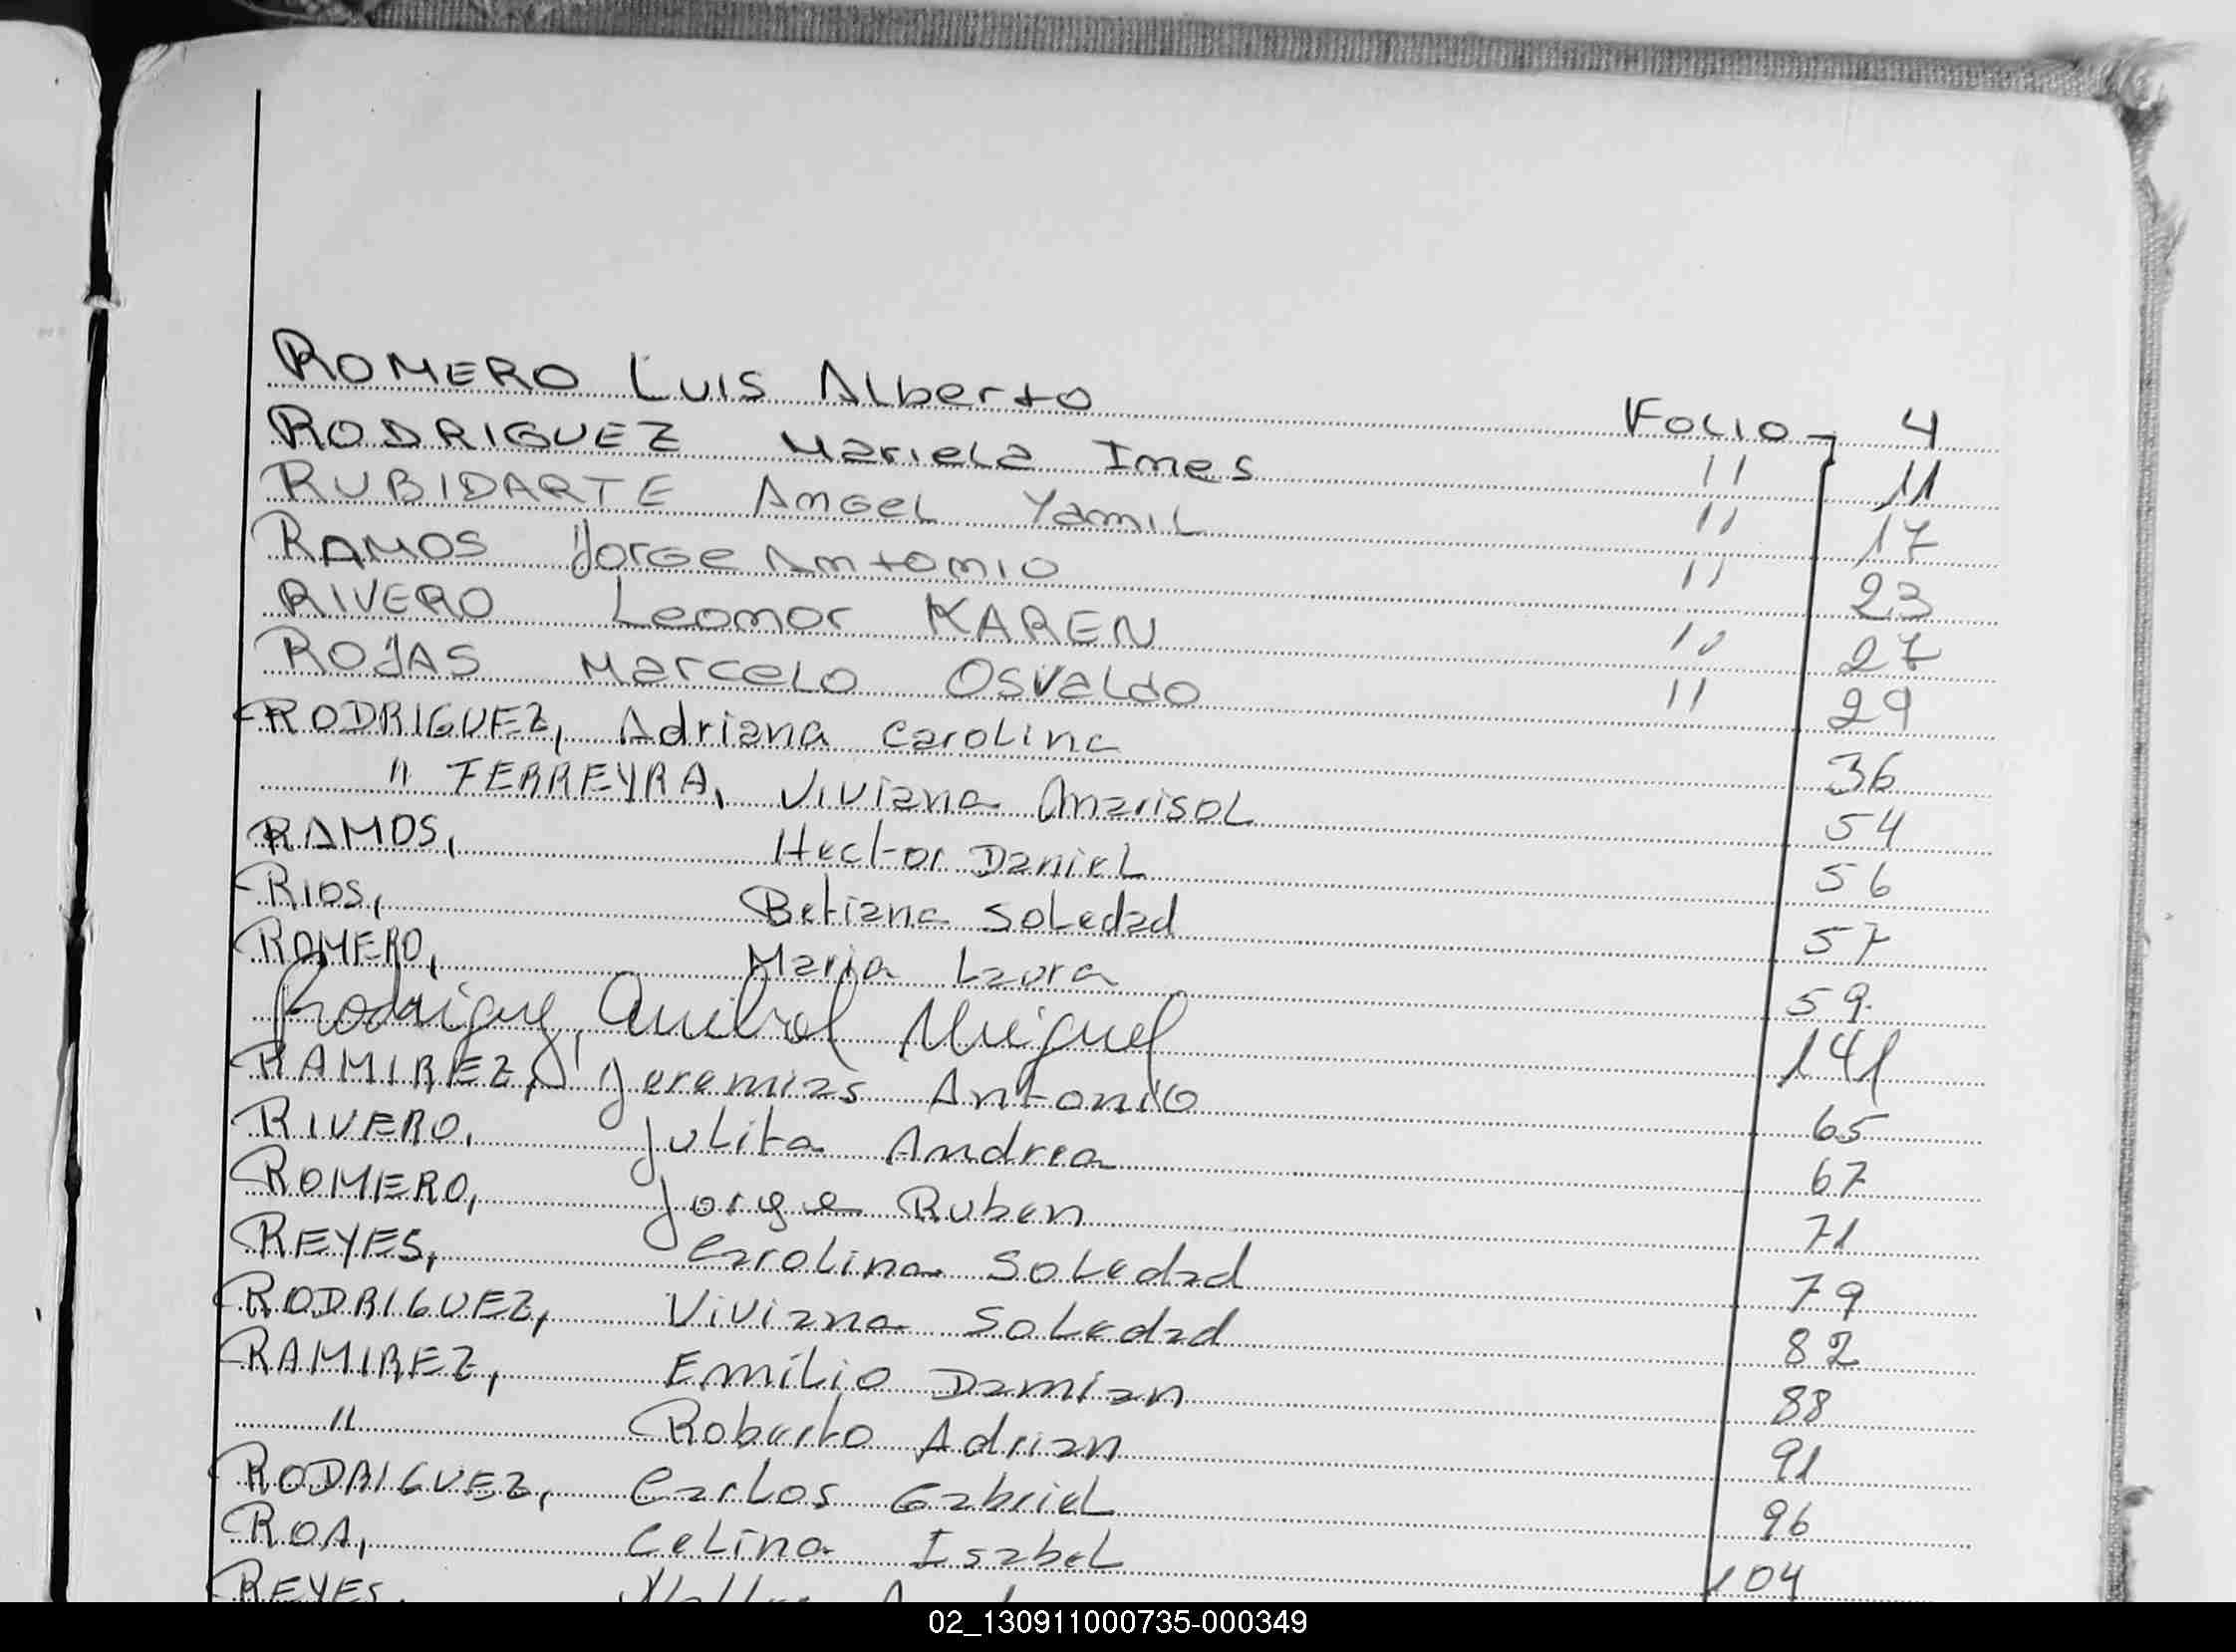 ROMERO Luis Alberto Folio 4
RODRIGUEZ Mariela Ines " 11
RUBIDARTE Angel Yamil " 17
RAMOS Jorge Antonio " 23
RIVERO Leonor KAREN " 27
ROJAS Marcelo Osvaldo " 29
RODRIGUEZ, Adriana Carolina 36
" FERREYRA, Viviana Marisol 54
RAMOS, Hector Daniel 56
RIOS, Betiana Soledad 57
ROMERO, Maria Laura 59
Rodriguez, Anibal Miguel 141
RAMIREZ, Jeremias Antonio 65
RIVERO, Julita Andrea 67
ROMERO, Jorge Ruben 71
REYES, Carolina Soledad 79
RODRIGUEZ, Viviana Soledad 82
RAMIREZ, Emilio Damian 88
" Roberto Adrian 91
RODRIGUEZ, Carlos Gabriel 96
ROA, Celina Isabel 104
REYES,
02_130911000735-000349